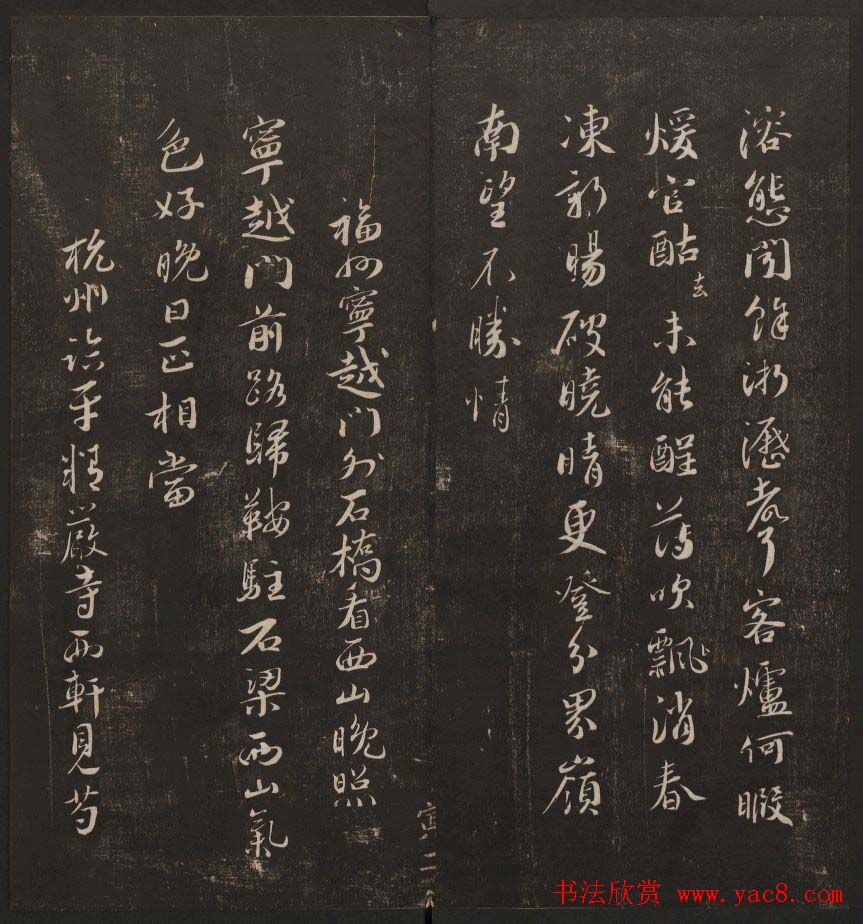 溶態閒餘淅瀝聲客爐何暇
煖官酤去未能醒薄吹飄消春
凍新暘破曉晴更登分界嶺
南望不勝情
福州寧越門外石橋看西山晚照
寧越門前路歸鞍駐石梁西山氣
色好晚日正相當
杭州臨平精嚴寺西軒見芍
書法欣賞 www.yac8.com